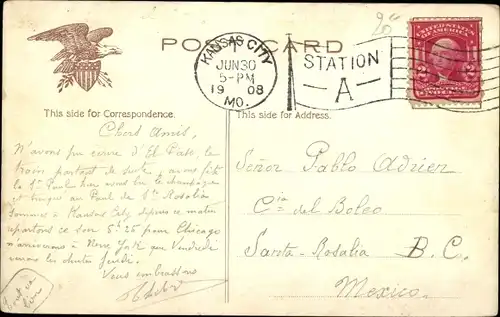 POST CARD
KANSAS CITY
JUN 30
5-PM
1908
MO.
STATION
A
This side for Correspondence.
This side for Address.
Chers Amis,
N'avons pu écrire d'El Paso, le
train partant de suite, avons fêté
la St Paul hier avons bu le champagne
et trinqué au Paul de Sta Rosalia
sommes à Kansas City depuis ce matin
repartons ce soir 5h25 pour Chicago
n'arriverons à New York que Vendredi
verrons les chutes Jeudi.
Vous embrassons
Tout va
bien
Señor Pablo Adrien
Cia del Boleo
Santa-Rosalia B. C.
Mexico.